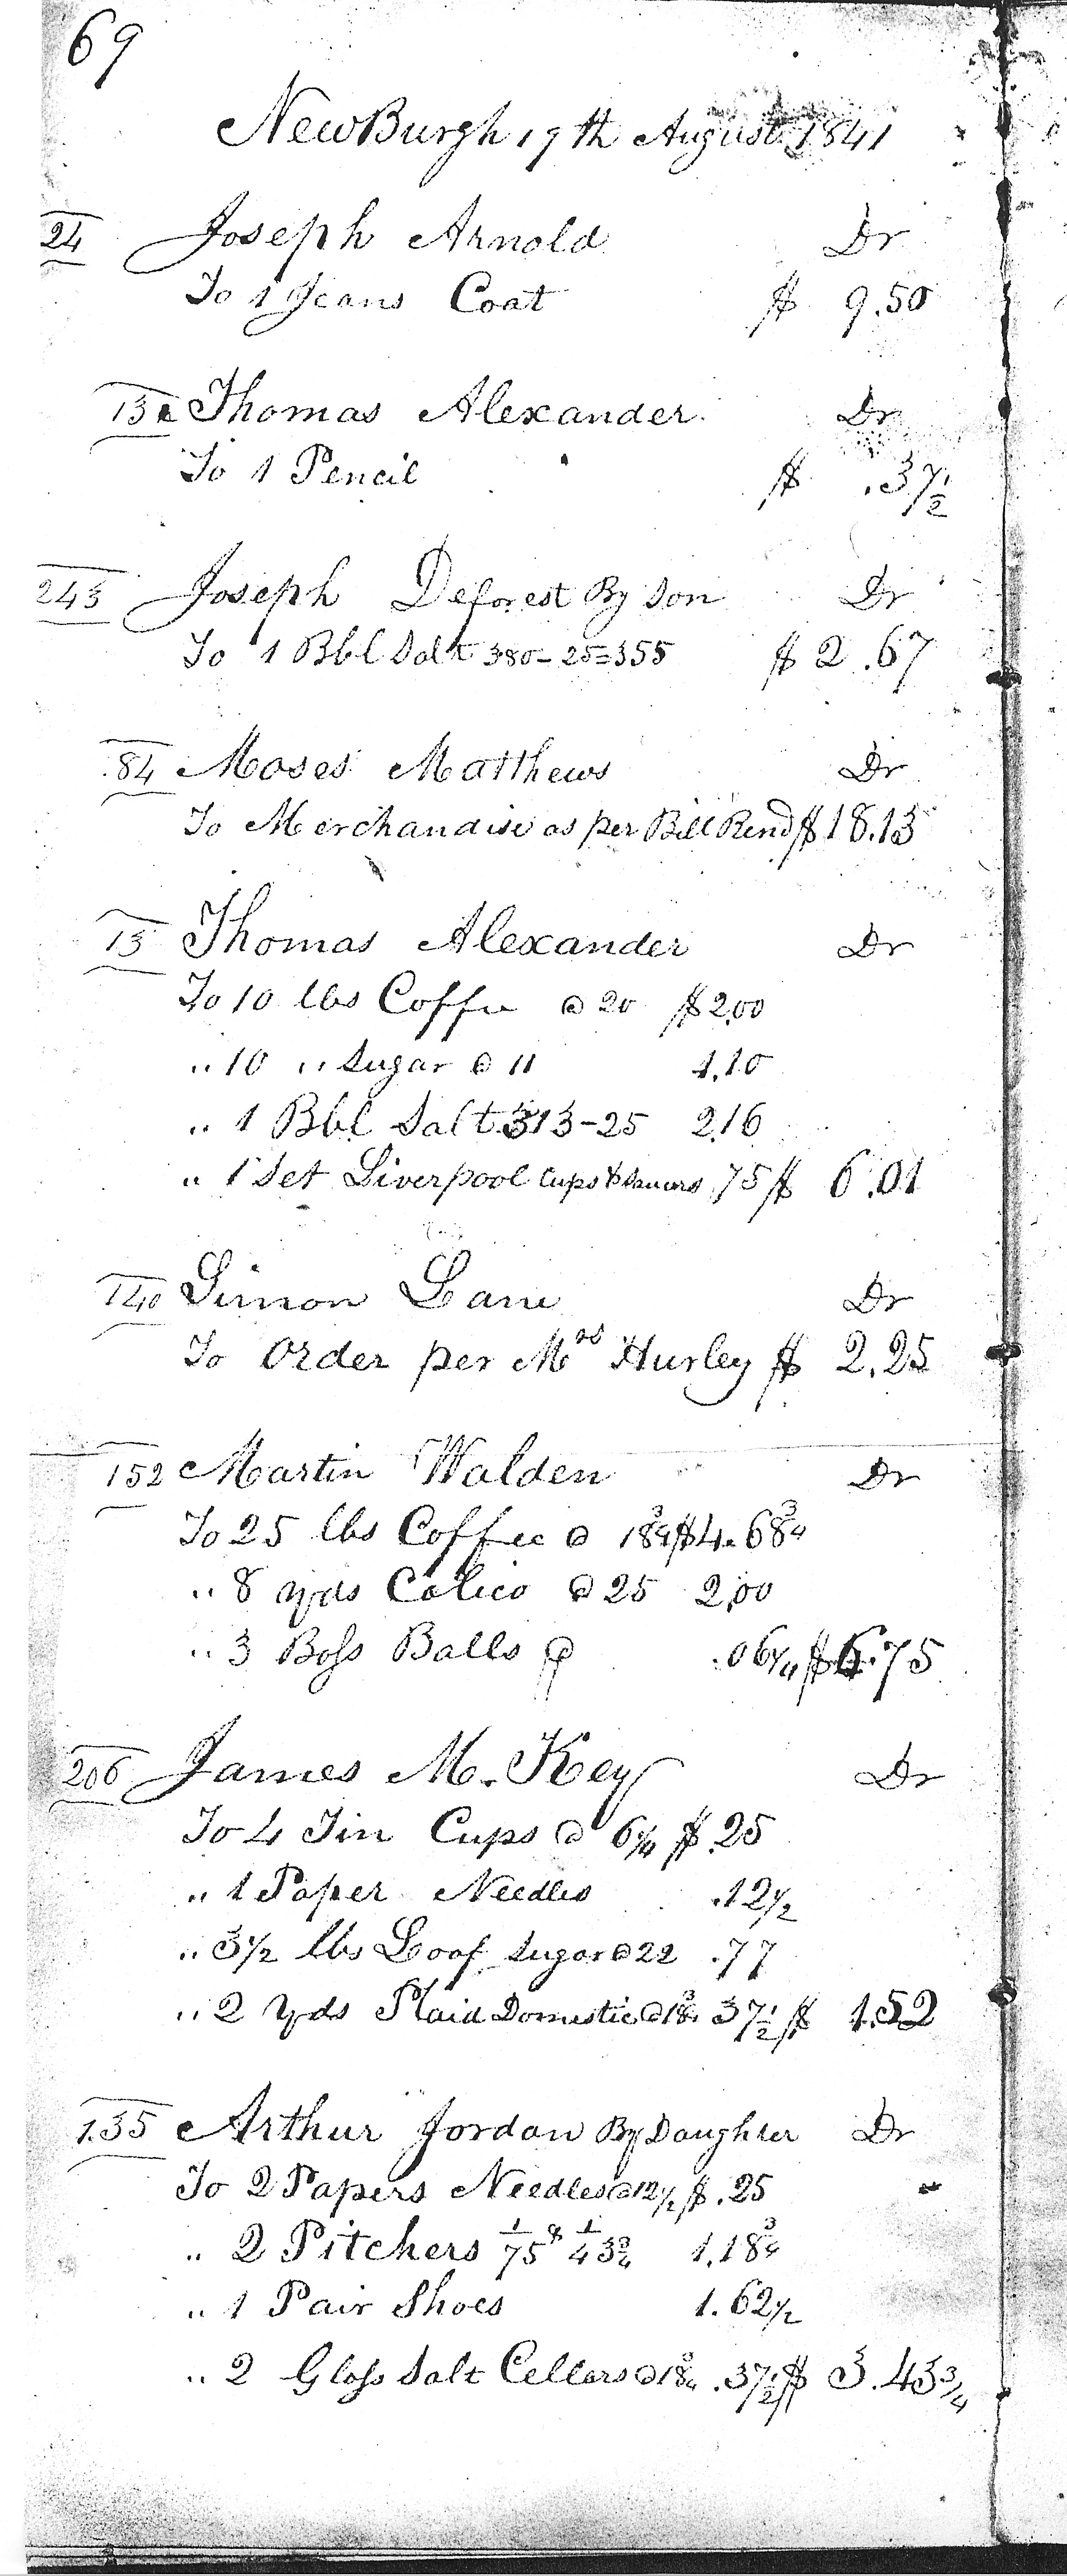 69
NewBurgh 19th August 1841
24 Joseph Arnold Dr
To 1 Jeans Coat $ 9.50
13 Thomas Alexander Dr
To 1 Pencil $ .37 1/2
243 Joseph Deforest By Son Dr
To 1 Bbl Salt 380-25=355 $ 2.67
84 Moses Matthews Dr
To Merchandise as per Bill Rend $ 18.13
13 Thomas Alexander Dr
To 10 lbs Coffee @ 20 $ 2,00
" 10 " Sugar @ 11 1.10
" 1 Bbl Salt 313-25 2,16
" 1 Set Liverpool Cups & Saucers .75 $ 6.01
140 Simon Lane Dr
To Order per Mrs Hurley $ 2.25
152 Martin Walden Dr
To 25 lbs Coffee @ 18 3/4 $ 4.68 3/4
" 8 yds Calico @ 25 2,00
" 3 Boss Balls @ .06 1/4 $ 6.75
206 James M. Key Dr
To 4 Tin Cups @ 6 1/4 $ .25
" 1 Paper Needles .12 1/2
" 3 1/2 lbs Loaf Sugar @ 22 .77
" 2 Yds Plaid Domestic @ 18 3/4 37 1/2 $ 1.52
135 Arthur Jordan By Daughter Dr
To 2 Papers Needles @ 12 1/2 $ .25
" 2 Pitchers 1/75 & 1/43 3/4 1.18 3/4
" 1 Pair Shoes 1.62 1/2
" 2 Glass Salt Cellars @ 18 3/4 .37 1/2 $ 3.43 3/4